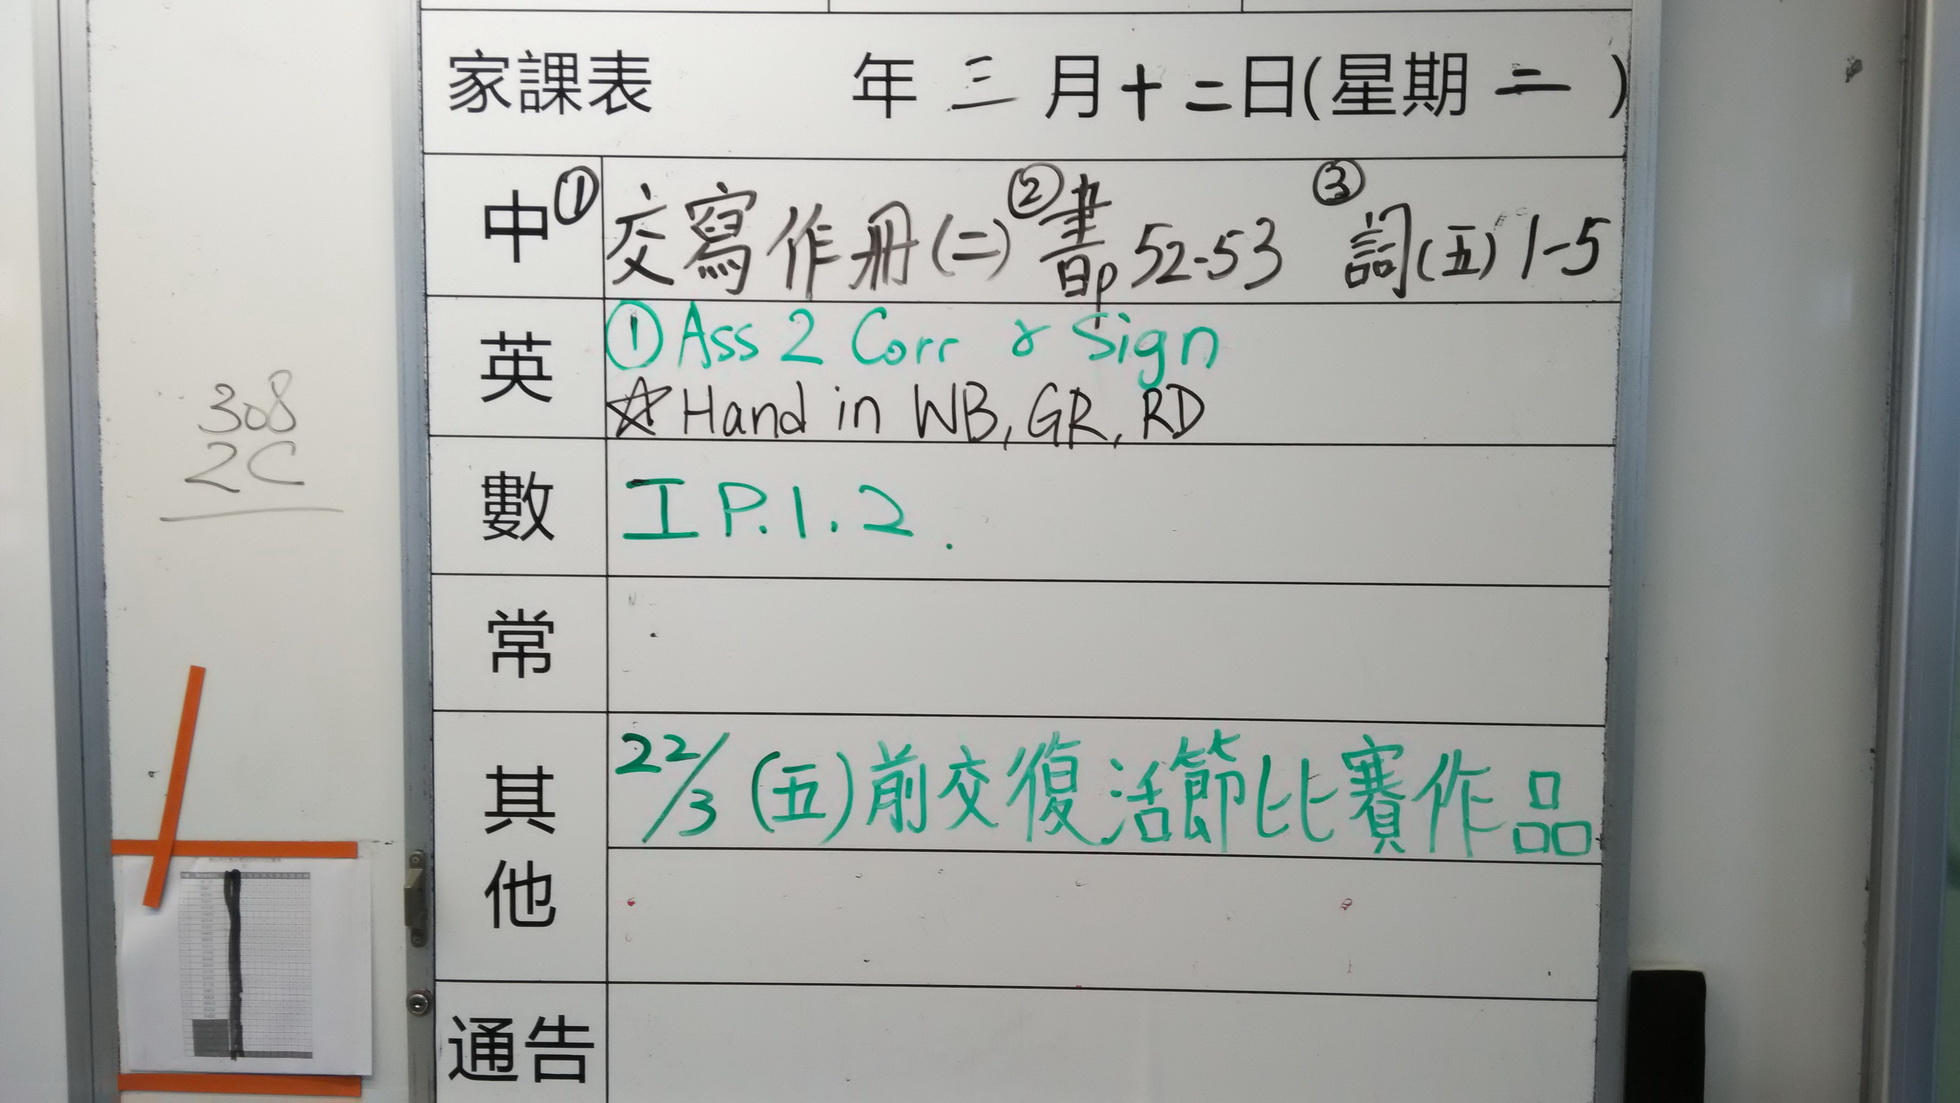 308
2C
家課表 年 三 月 十二 日(星期 二 )
中 ① 交寫作冊(二) ② 書p 52-53 ③ 詞(五) 1-5
英 ① Ass 2 Corr & Sign
☆ Hand in WB, GR, RD
數 工 P.1.2.
常
其他 22/3 (五)前交復活節比賽作品
通告